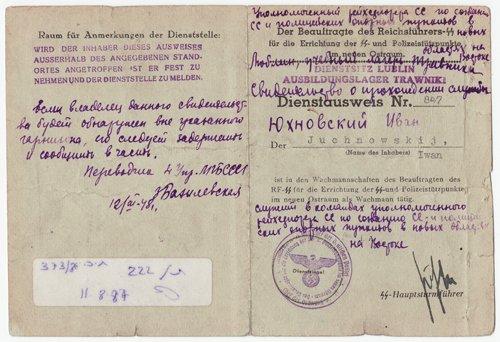 Raum für Anmerkungen der Dienststelle:
WIRD DER INHABER DIESES AUSWEISES
AUSSERHALB DES ANGEGEBENEN STAND-
ORTES ANGETROFFEN IST ER FEST ZU
NEHMEN UND DER DIENSTSTELLE ZU MELDEN.
Если владелец данного свидетельства
будет обнаружен вне указанного
гарнизона, его следует задержать
и сообщить в часть.
Переводила 4 Упр. МГБ СССР
Василевская
12/III-48г.
373/
222
11.8.87
Уполномоченный рейхсфюрера СС по созданию
СС и полицейских опорных пунктов в новых
областях на Востоке
Der Beauftragte des Reichsführers-SS
für die Errichtung der SS- und Polizeistützpunkte
im neuen Ostraum.
Люблин, учебный лагерь Травники
DIENSTSITZ LUBLIN
AUSBILDUNGSLAGER TRAWNIKI
Свидетельство о прохождении службы
Dienstausweis Nr. 847
Юхновский Иван
Der Juchnowskij,
(Name des Inhabers) Iwan
ist in den Wachmannschaften des Beauftragten des
RF-SS für die Errichtung der SS- und Polizeistützpunkte
im neuen Ostraum als Wachmann tätig.
служит в командах уполномоченного
рейхсфюрера СС по созданию СС и полицей-
ских опорных пунктов в новых областях
на Востоке
Dienstsiegel
SS-Hauptsturmführer